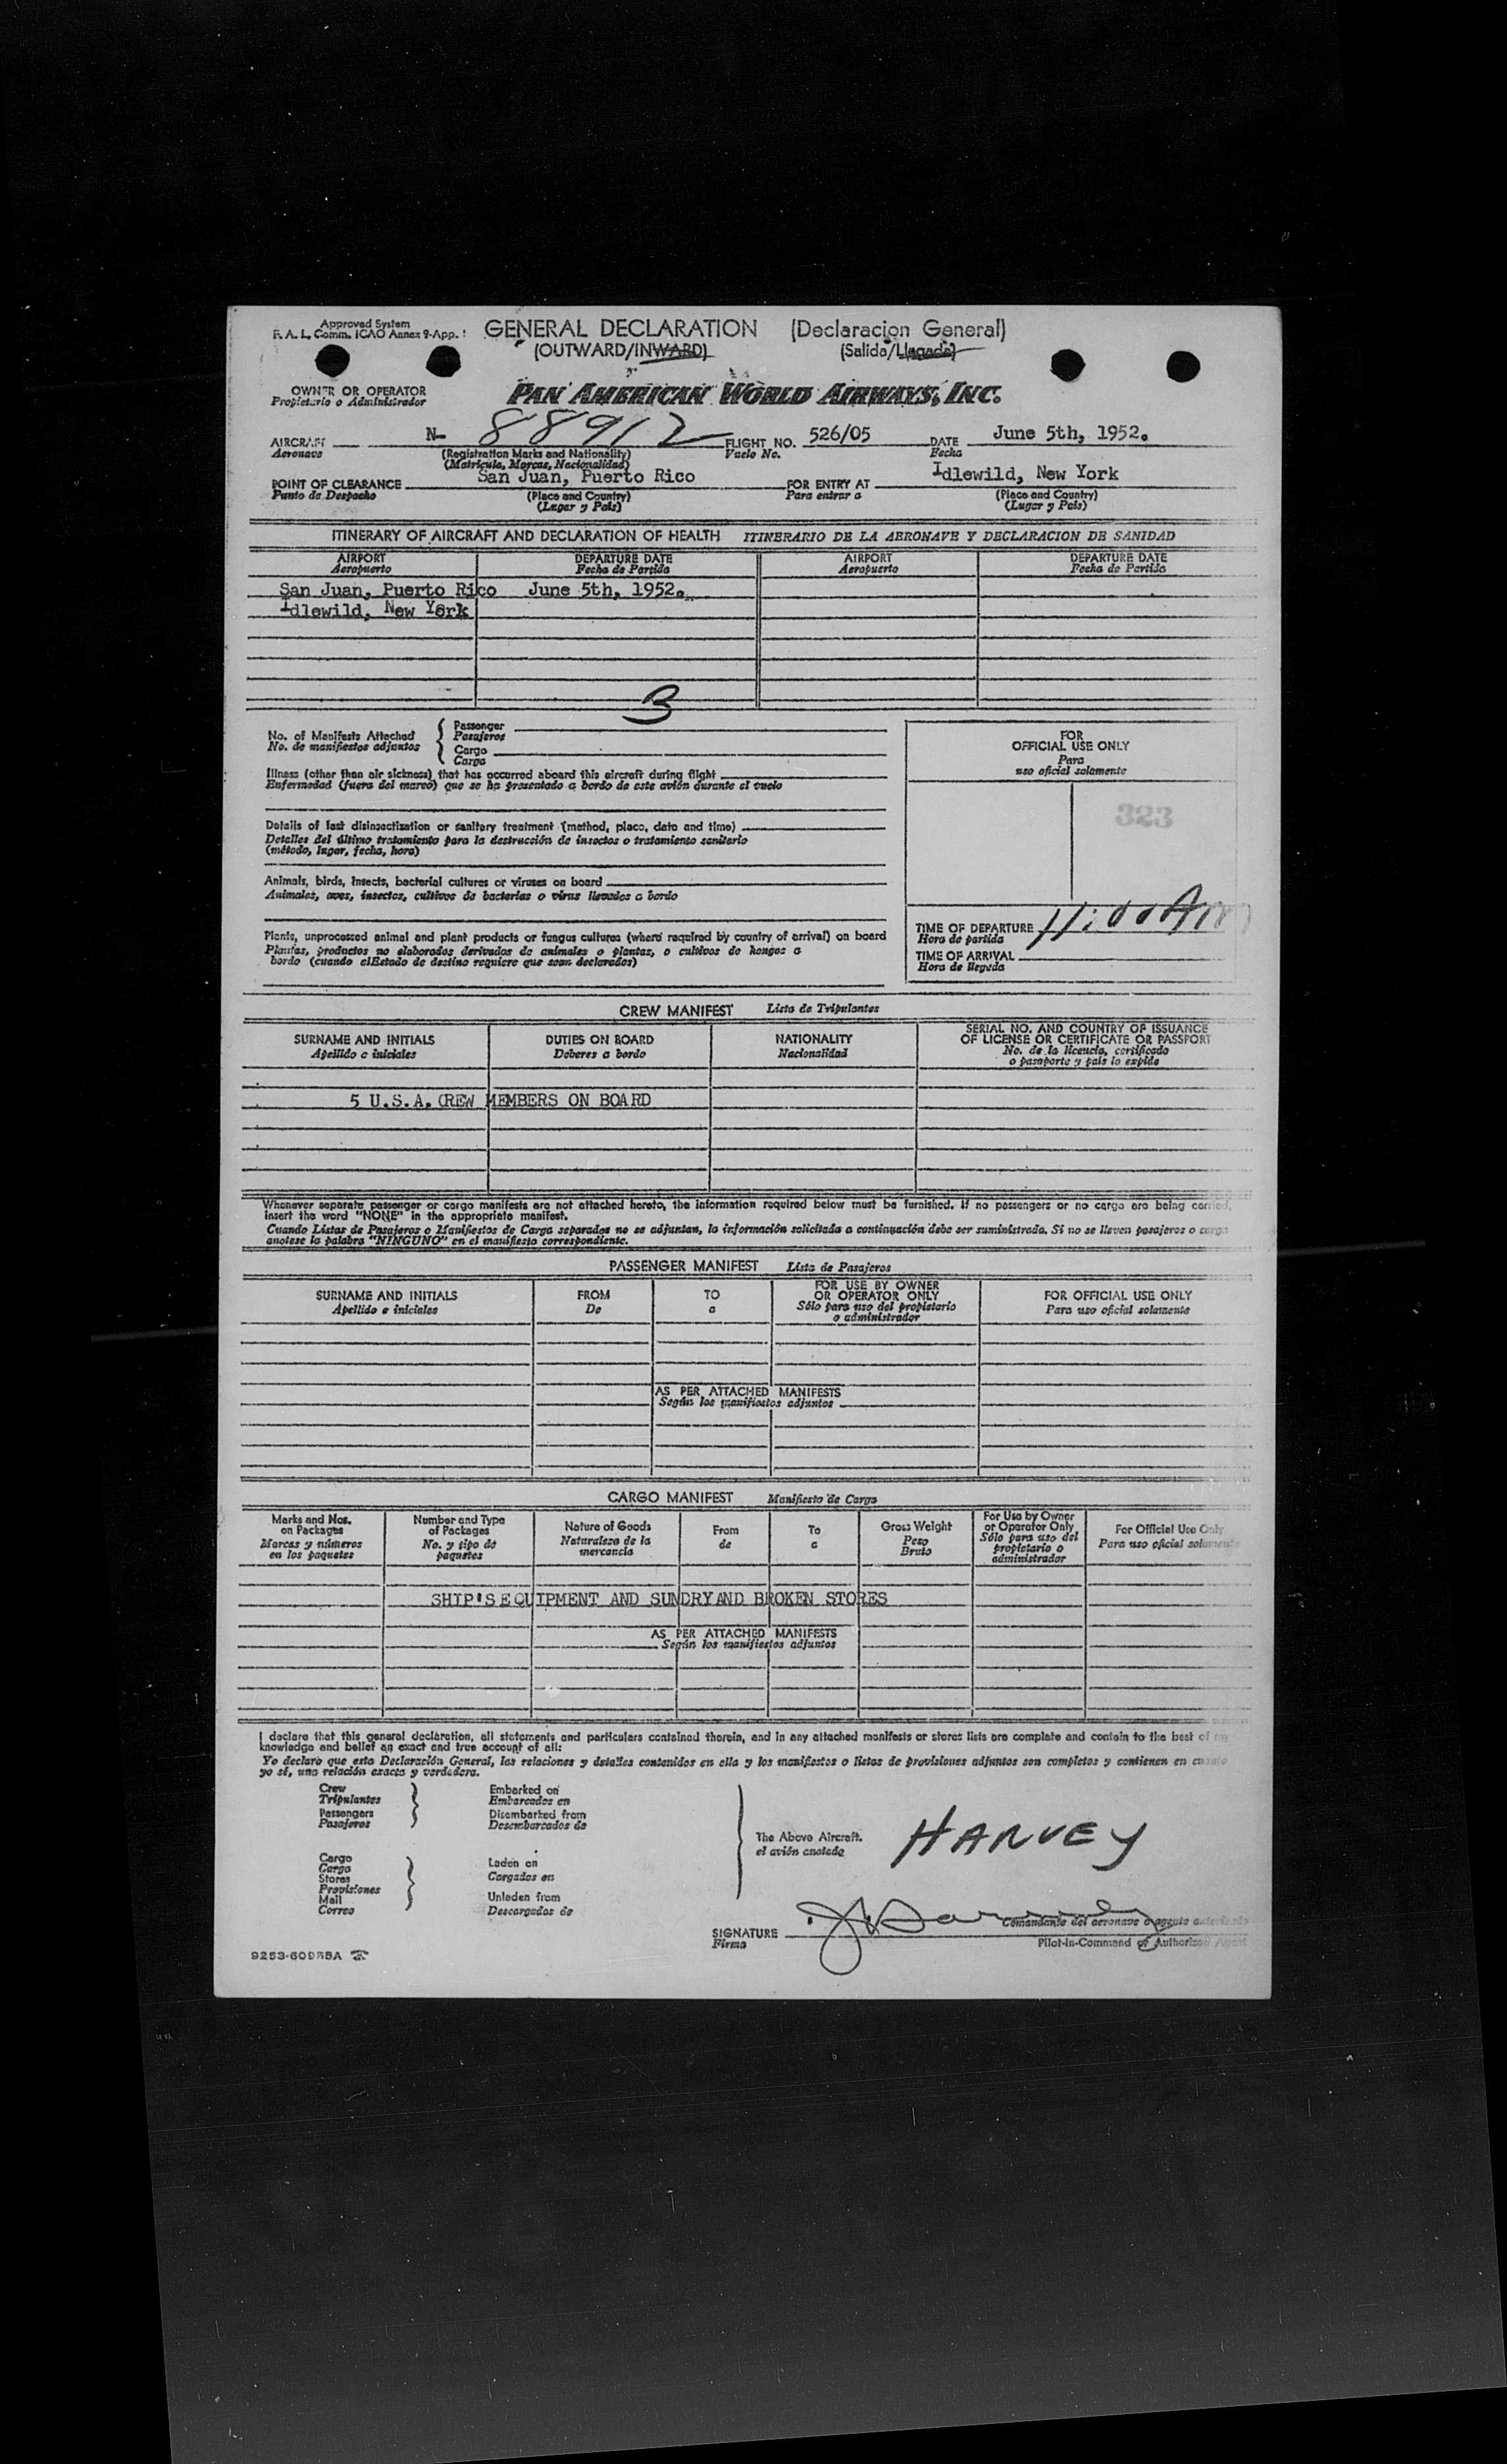 Approved System
F. A. L. Comm. ICAO Annex 9-App. 1
GENERAL DECLARATION (Declaracion General)
(OUTWARD/INWARD) (Salida/Llegada)
OWNER OR OPERATOR
Propietario o Administrador
PAN AMERICAN WORLD AIRWAYS, INC.
AIRCRAFT N- 88912 FLIGHT NO. 526/05 DATE June 5th, 1952.
Aeronave (Registration Marks and Nationality) Vuelo No. Fecha
(Matricula, Marcas, Nacionalidad)
POINT OF CLEARANCE San Juan, Puerto Rico FOR ENTRY AT Idlewild, New York
Punto de Despacho (Place and Country) Para entrar a (Place and Country)
(Lugar y País) (Lugar y País)
ITINERARY OF AIRCRAFT AND DECLARATION OF HEALTH ITINERARIO DE LA AERONAVE Y DECLARACION DE SANIDAD
AIRPORT DEPARTURE DATE AIRPORT DEPARTURE DATE
Aeropuerto Fecha de Partida Aeropuerto Fecha de Partida
San Juan, Puerto Rico June 5th, 1952.
Idlewild, New York
3
No. of Manifests Attached
No. de manifiestos adjuntos
Passenger
Pasajeros
Cargo
Carga
Illness (other than air sickness) that has occurred aboard this aircraft during flight
Enfermedad (fuera del mareo) que se ha presentado a bordo de este avión durante el vuelo
Details of last disinsectization or sanitary treatment (method, place, date and time)
Detalles del último tratamiento para la destrucción de insectos o tratamiento sanitario
(método, lugar, fecha, hora)
Animals, birds, insects, bacterial cultures or viruses on board
Animales, aves, insectos, cultivos de bacterias o virus llevados a bordo
Plants, unprocessed animal and plant products or fungus cultures (where required by country of arrival) on board
Plantas, productos no elaborados derivados de animales o plantas, o cultivos de hongos a
bordo (cuando el Estado de destino requiere que sean declarados)
FOR
OFFICIAL USE ONLY
Para
uso oficial solamente
323
TIME OF DEPARTURE 11:00 AM
Hora de partida
TIME OF ARRIVAL
Hora de llegada
CREW MANIFEST Lista de Tripulantes
SURNAME AND INITIALS DUTIES ON BOARD NATIONALITY SERIAL NO. AND COUNTRY OF ISSUANCE
OF LICENSE OR CERTIFICATE OR PASSPORT
Apellido e iniciales Deberes a bordo Nacionalidad No. de la licencia, certificado
o pasaporte y país lo expide
5 U.S.A. CREW MEMBERS ON BOARD
Whenever separate passenger or cargo manifests are not attached hereto, the information required below must be furnished. If no passengers or no cargo are being carried,
insert the word "NONE" in the appropriate manifest.
Cuando Listas de Pasajeros o Manifiestos de Carga separados no se adjuntan, la información solicitada a continuación debe ser suministrada. Si no se lleven pasajeros o carga
anotese la palabra "NINGUNO" en el manifiesto correspondiente.
PASSENGER MANIFEST Lista de Pasajeros
SURNAME AND INITIALS FROM TO FOR USE BY OWNER
OR OPERATOR ONLY FOR OFFICIAL USE ONLY
Apellido e iniciales De a Sólo para uso del propietario
o administrador Para uso oficial solamente
AS PER ATTACHED MANIFESTS
Según los manifiestos adjuntos
CARGO MANIFEST Manifiesto de Carga
Marks and Nos.
on Packages
Marcas y números
en los paquetes
Number and Type
of Packages
No. y tipo de
paquetes
Nature of Goods
Naturaleza de la
mercancía
From
de
To
a
Gross Weight
Peso
Bruto
For Use by Owner
or Operator Only
Sólo para uso del
propietario o
administrador
For Official Use Only
Para uso oficial solamente
SHIP'S EQUIPMENT AND SUNDRY AND BROKEN STORES
AS PER ATTACHED MANIFESTS
Según los manifiestos adjuntos
I declare that this general declaration, all statements and particulars contained therein, and in any attached manifests or stores lists are complete and contain to the best of my
knowledge and belief an exact and true account of all:
Yo declaro que esta Declaración General, las relaciones y detalles contenidos en ella y los manifiestos o listas de provisiones adjuntos son completos y contienen en cuanto
yo sé, una relación exacta y verdadera.
Crew
Tripulantes
Passengers
Pasajeros
Embarked on
Embarcados en
Disembarked from
Desembarcados de
Cargo
Carga
Stores
Provisiones
Mail
Correo
Laden on
Cargados en
Unladen from
Descargados de
The Above Aircraft.
el avión anotado
HARVEY
SIGNATURE J. Harvey
Firma
Comandante del aeronave o agente autorizado
Pilot-in-Command or Authorized Agent